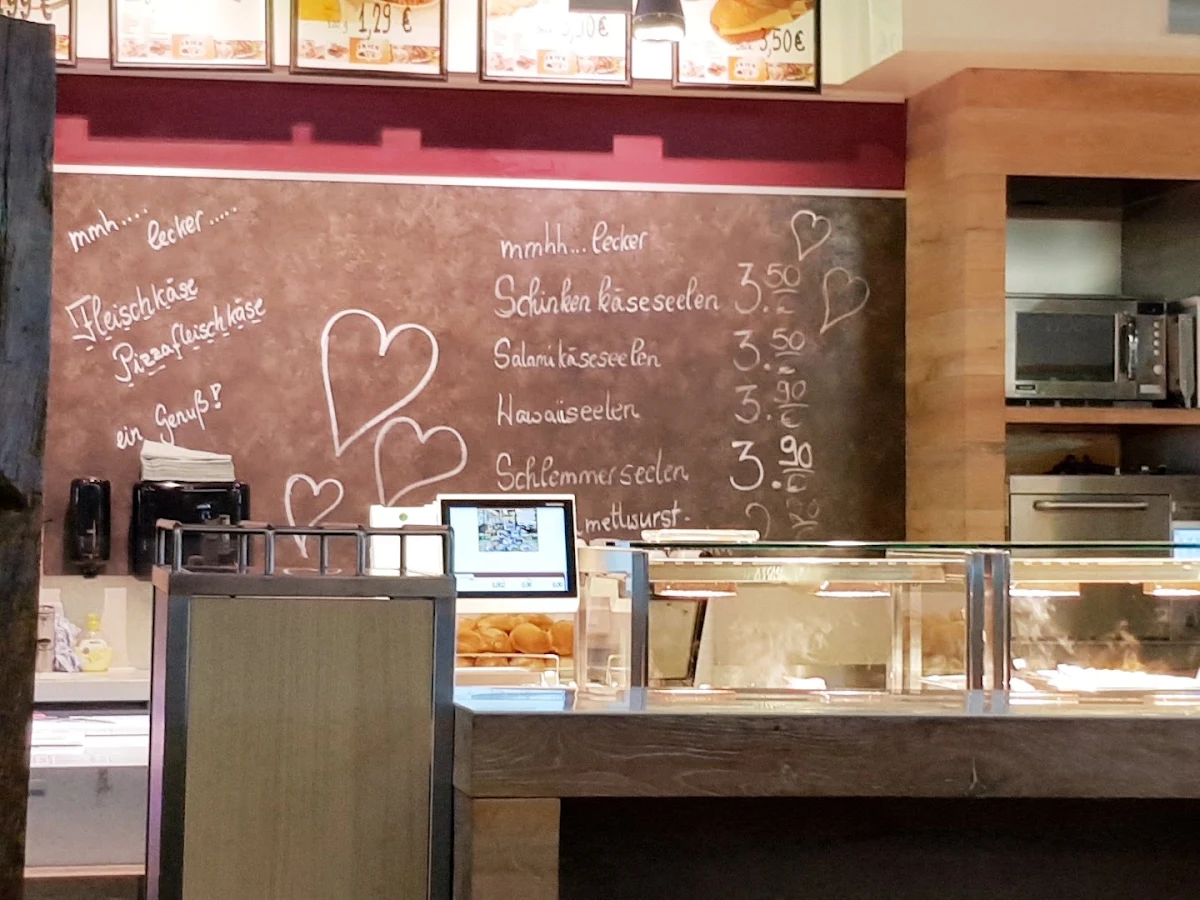 1,29 €
3,50€
mmh....
lecker.....
Fleischkäse
Pizzafleischkäse
ein Genuß!
mmhh... lecker
Schinken käseseelen 3.50 €
Salamikäseseelen 3.50
Hawaiiseelen 3.90 €
Schlemmerseelen 3.90 €
mettwurst.